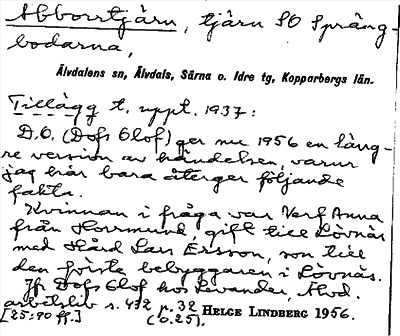 Abborrtjärn, tjärn SO Spräng-
bodarna,
Älvdalens sn, Älvdals, Särna o. Idre tg, Kopparbergs län.
Tillägg t. uppt. 1937:
D.O. (Dofs Olof) ger nu 1956 en läng-
re version av händelsen, varur
jag här bara återger följande
fakta.
Kvinnan i fråga var Verf Anna
från Horrmund, gift till Lövnäs
med Hård Lars Ersson, son till
den förste bebyggaren i Lövnäs.
Jfr Dofs Olof hos Levander, Älvd.
arbetsliv s. 432 r. 32
[25:90 ff.] (o. 25). HELGE LINDBERG 1956.